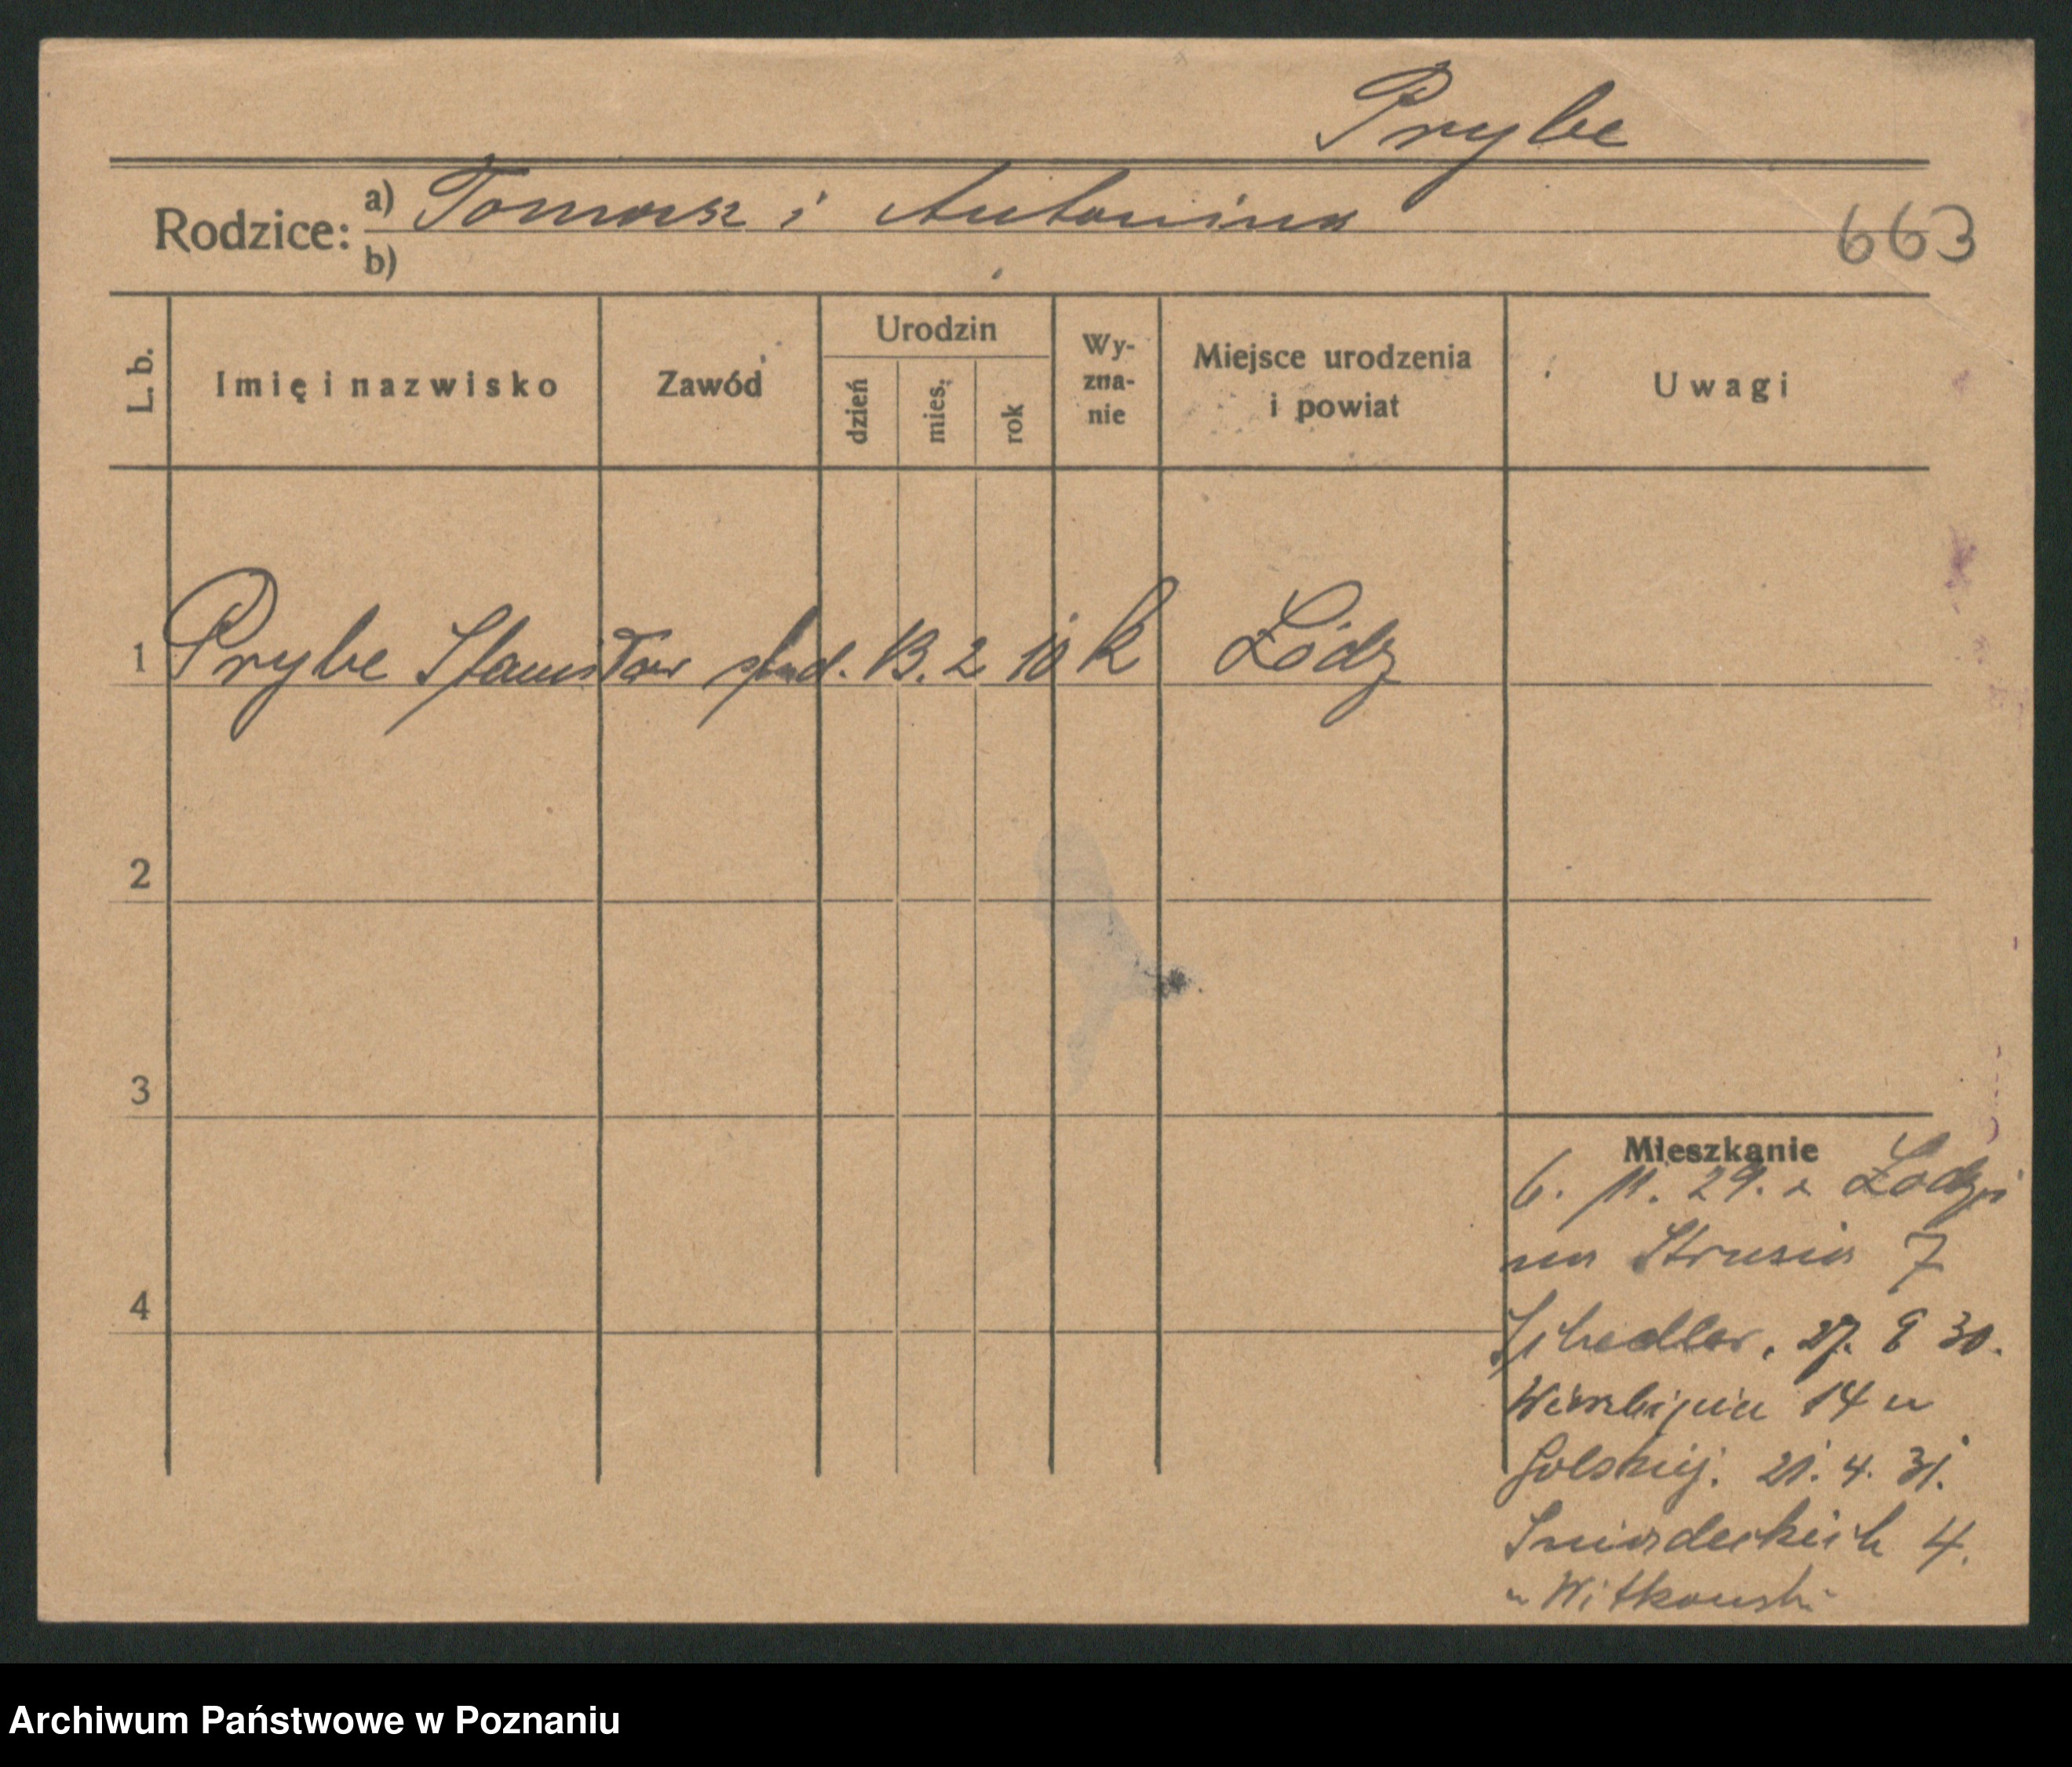 Prybe
Rodzice: a) Tomasz i Antonina
b)
663
L. b. Imię i nazwisko Zawód Urodzin dzień mies. rok Wyznanie Miejsce urodzenia i powiat Uwagi
1 Prybe Stanisław stud. 13. 2 10 k Łódz
2
3
4
Mieszkanie
6. 11. 29. z Łodzi
na Strusia 7
27. 8 30.
14 u
21. 4. 31.
Sniadeckich 4.
u Witkowski
Archiwum Państwowe w Poznaniu